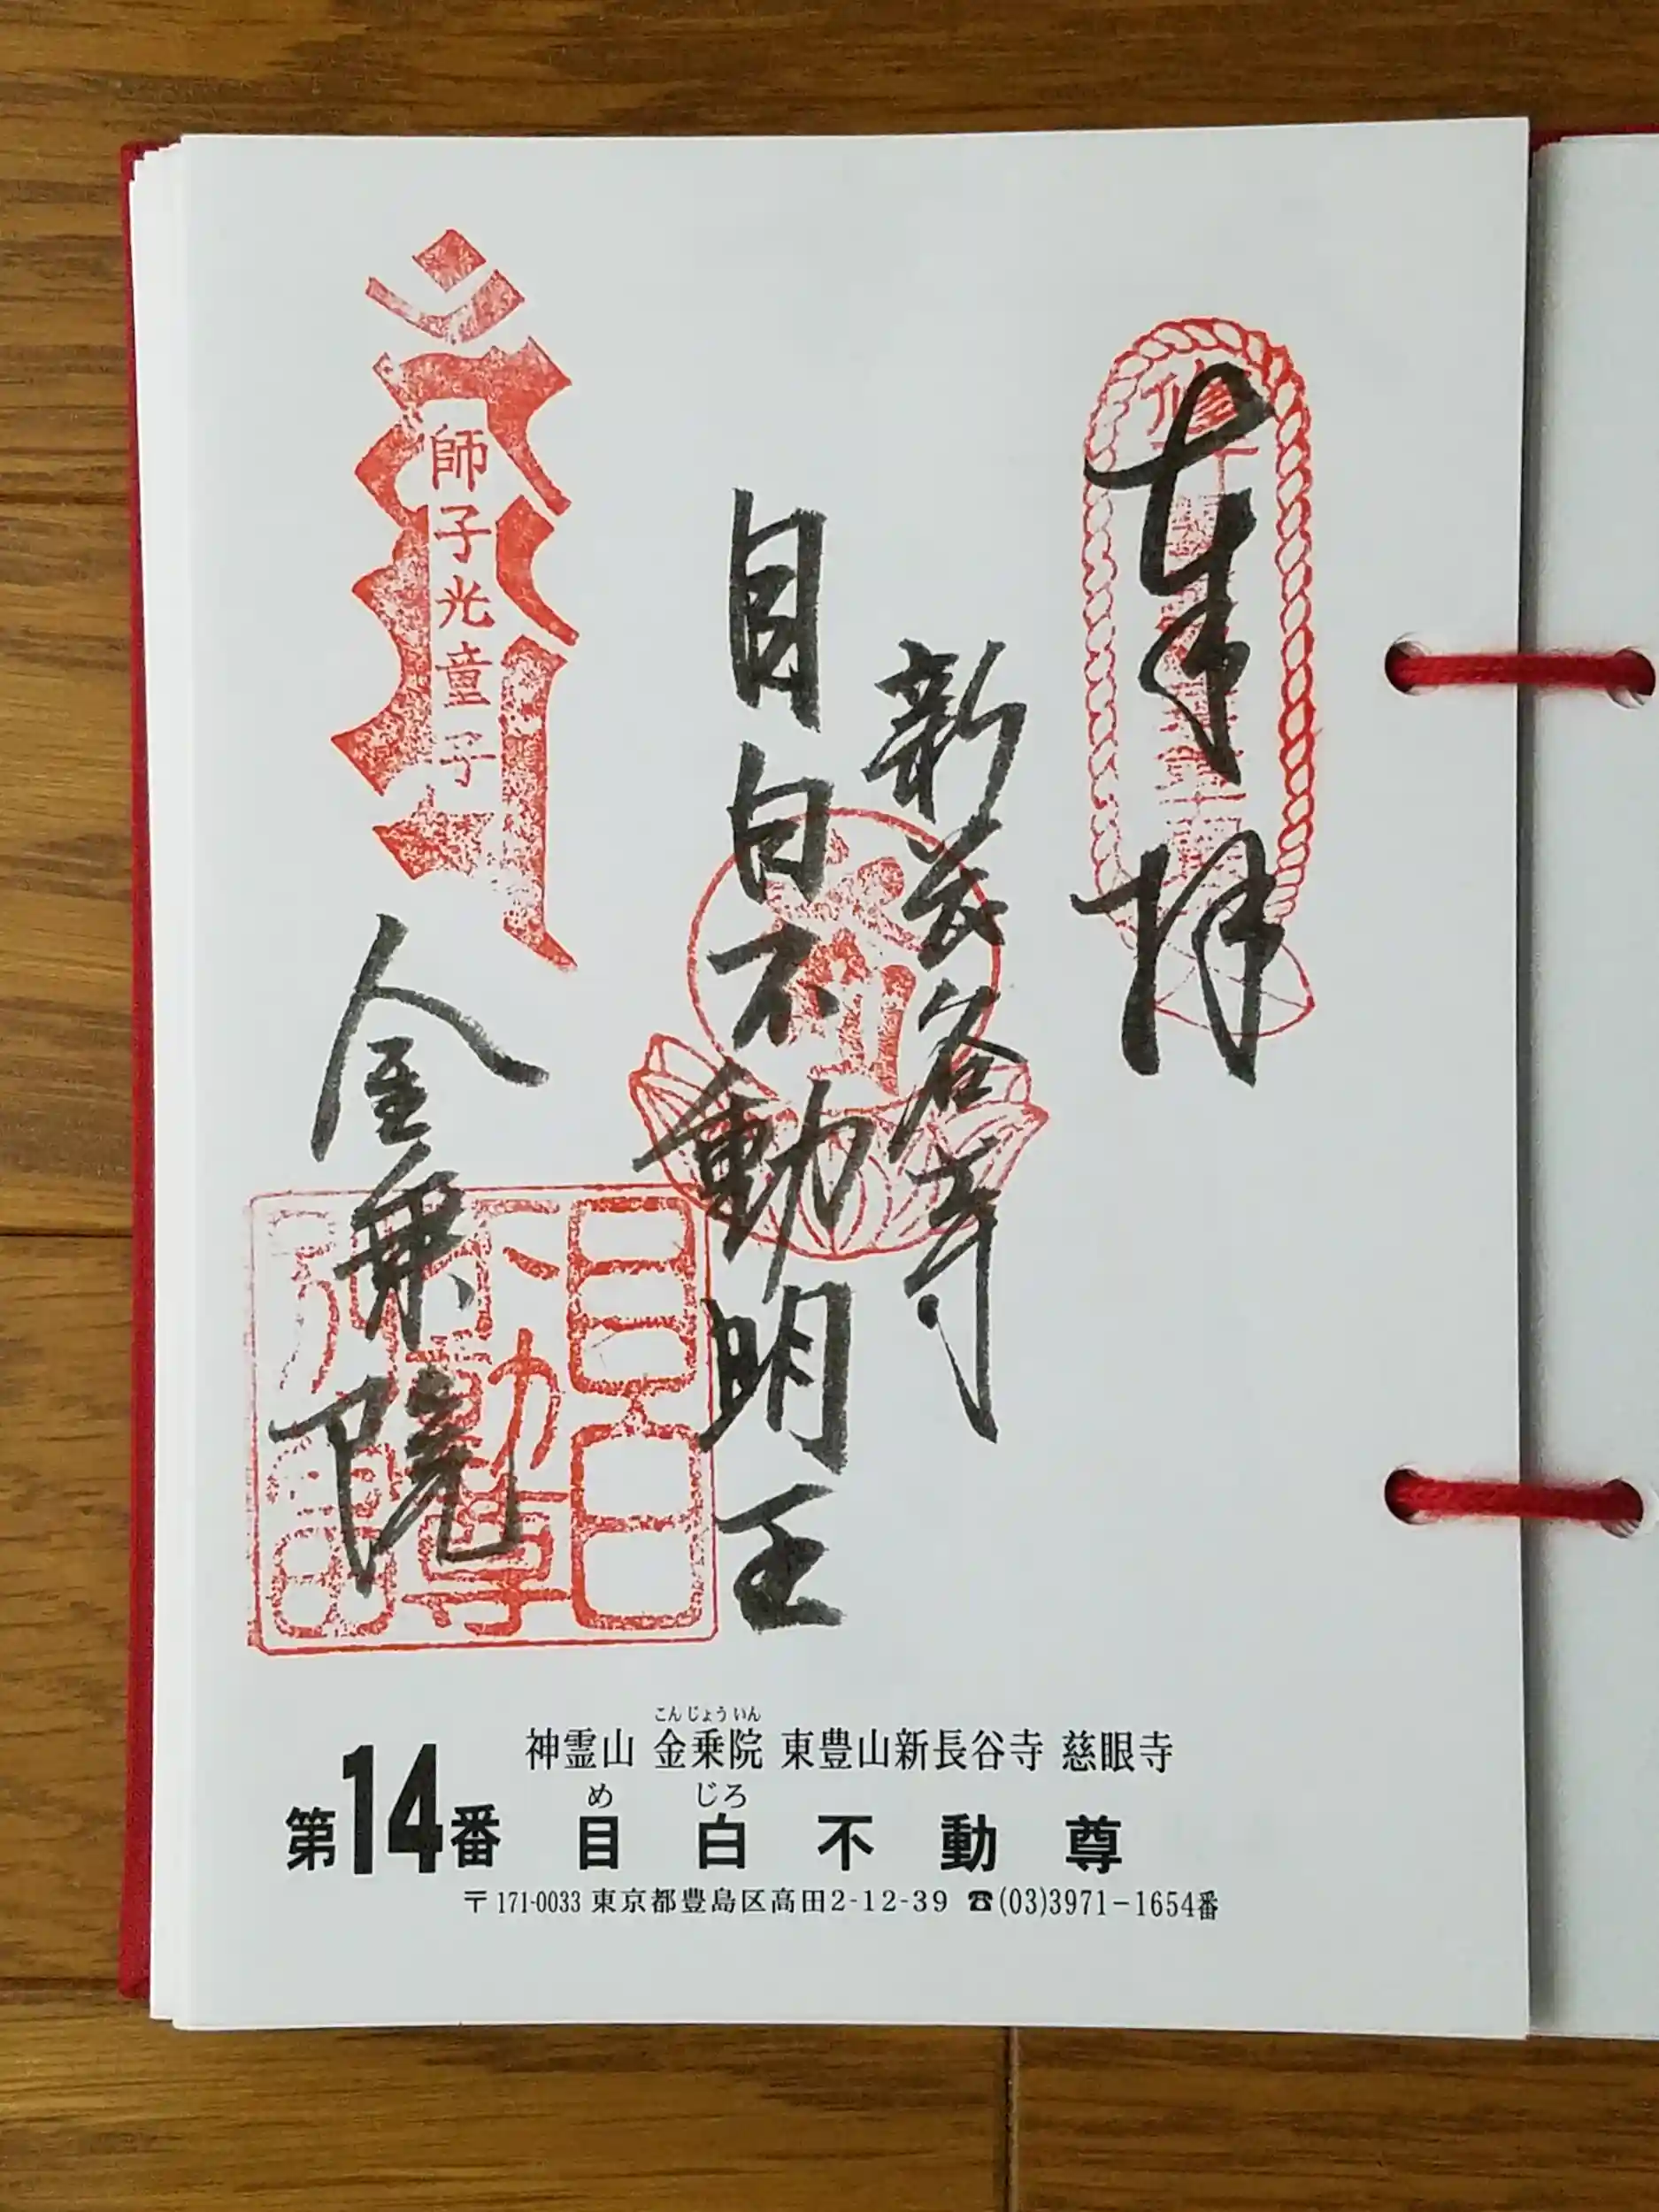 奉拝
新長谷寺
目白不動明王
師子光童子
金乗院
目白
不動尊
こんじょういん
神霊山 金乗院 東豊山新長谷寺 慈眼寺
め じろ
第14番 目白不動尊
〒171-0033 東京都豊島区高田2-12-39 ☎(03)3971-1654番